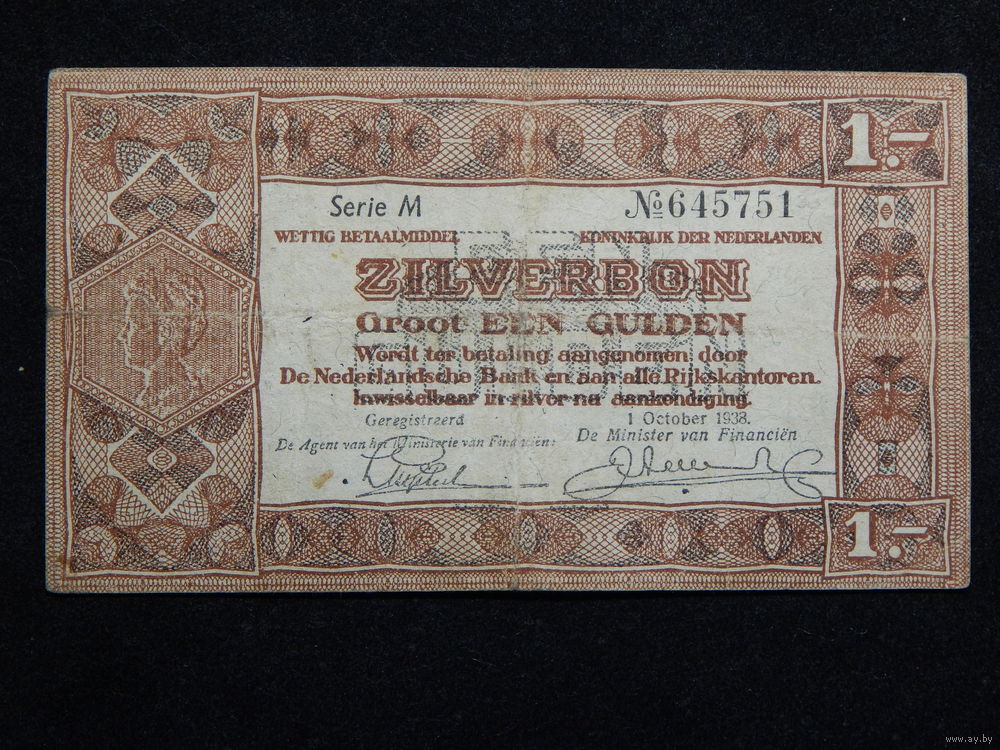 1.-
Serie M
№ 645751
WETTIG BETAALMIDDEL
KONINKRIJK DER NEDERLANDEN
ZILVERBON
Groot EEN GULDEN
Wordt ter betaling aangenomen door
De Nederlandsche Bank en aan alle Rijkskantoren.
Inwisselbaar in zilver na aankondiging.
Geregistreerd
1 October 1938.
De Agent van het Ministerie van Financiën:
De Minister van Financiën
1.-
www.ay.by